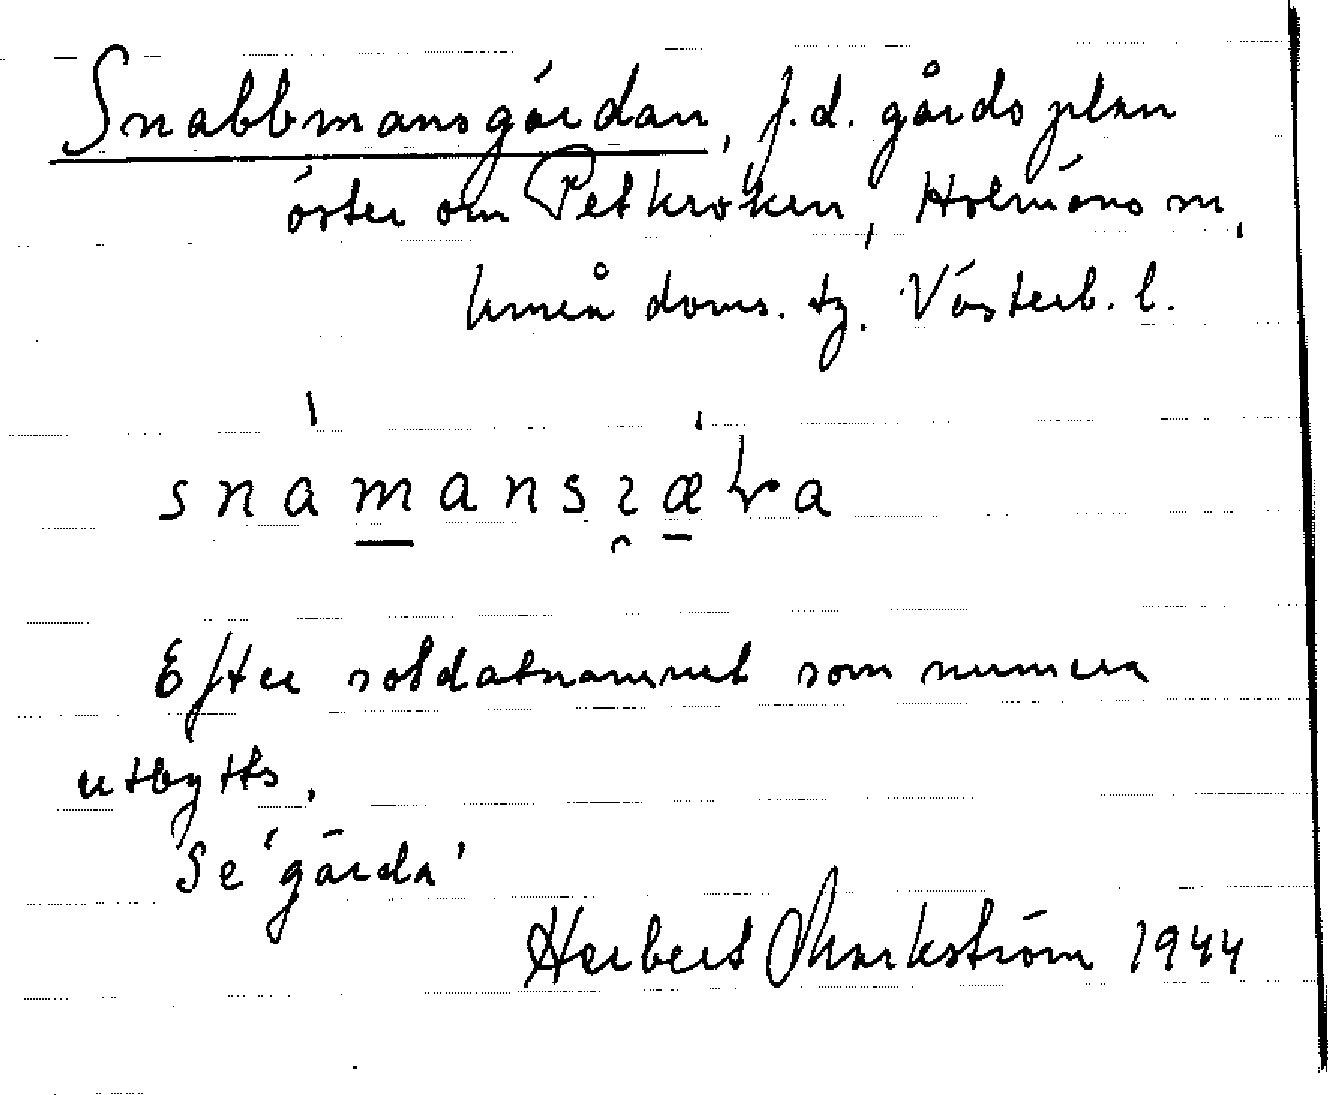 Snabbmansgärdan, f.d. gårdsplan
öster om Petkroken, Holmöns sn,
Umeå doms. tg. Västerb. l.
snamansɀæɽa
Efter soldatnamnet som numera
utbytts.
Se 'gärda'
Herbert Markström 1944